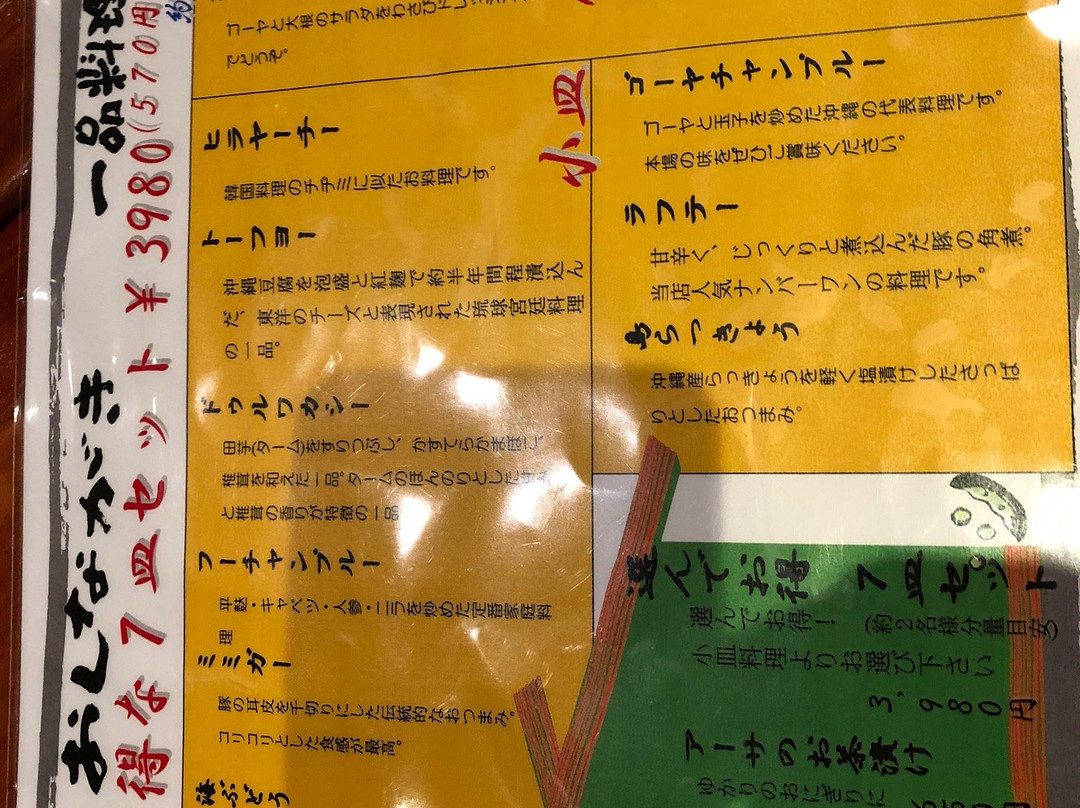 おしながき 一品料理
得な7皿セット ¥3980(570円
ゴーヤと大根のサラダをわさびドレッシン
でどうぞ。
小皿
ヒラヤーチー
韓国料理のチヂミに似たお料理です。
トーフヨー
沖縄豆腐を泡盛と紅麹で約半年間程漬込ん
だ、東洋のチーズと表現された琉球宮廷料理
の一品。
ドゥルワカシー
田芋(ターム)をすりつぶし、かすてらかまぼこ、
椎茸を和えた一品。タームのほんのりとした
と椎茸の香りが特徴の一品
フーチャンプルー
平麩・キャベツ・人参・ニラを炒めた定番家庭料
理
ミミガー
豚の耳皮を千切りにした伝統的なおつまみ。
コリコリとした食感が最高。
海ぶどう
ゴーヤチャンプルー
ゴーヤと玉子を炒めた沖縄の代表料理です。
本場の味をぜひご賞味ください。
ラフテー
甘辛く、じっくりと煮込んだ豚の角煮。
当店人気ナンバーワンの料理です。
島らっきょう
沖縄産らっきょうを軽く塩漬けしたさっぱ
りとしたおつまみ。
選んでお得 7皿セット
選んでお得! (約2名様分量目安)
小皿料理よりお選び下さい
3,980円
アーサのお茶漬け
ゆかりのおにぎりに